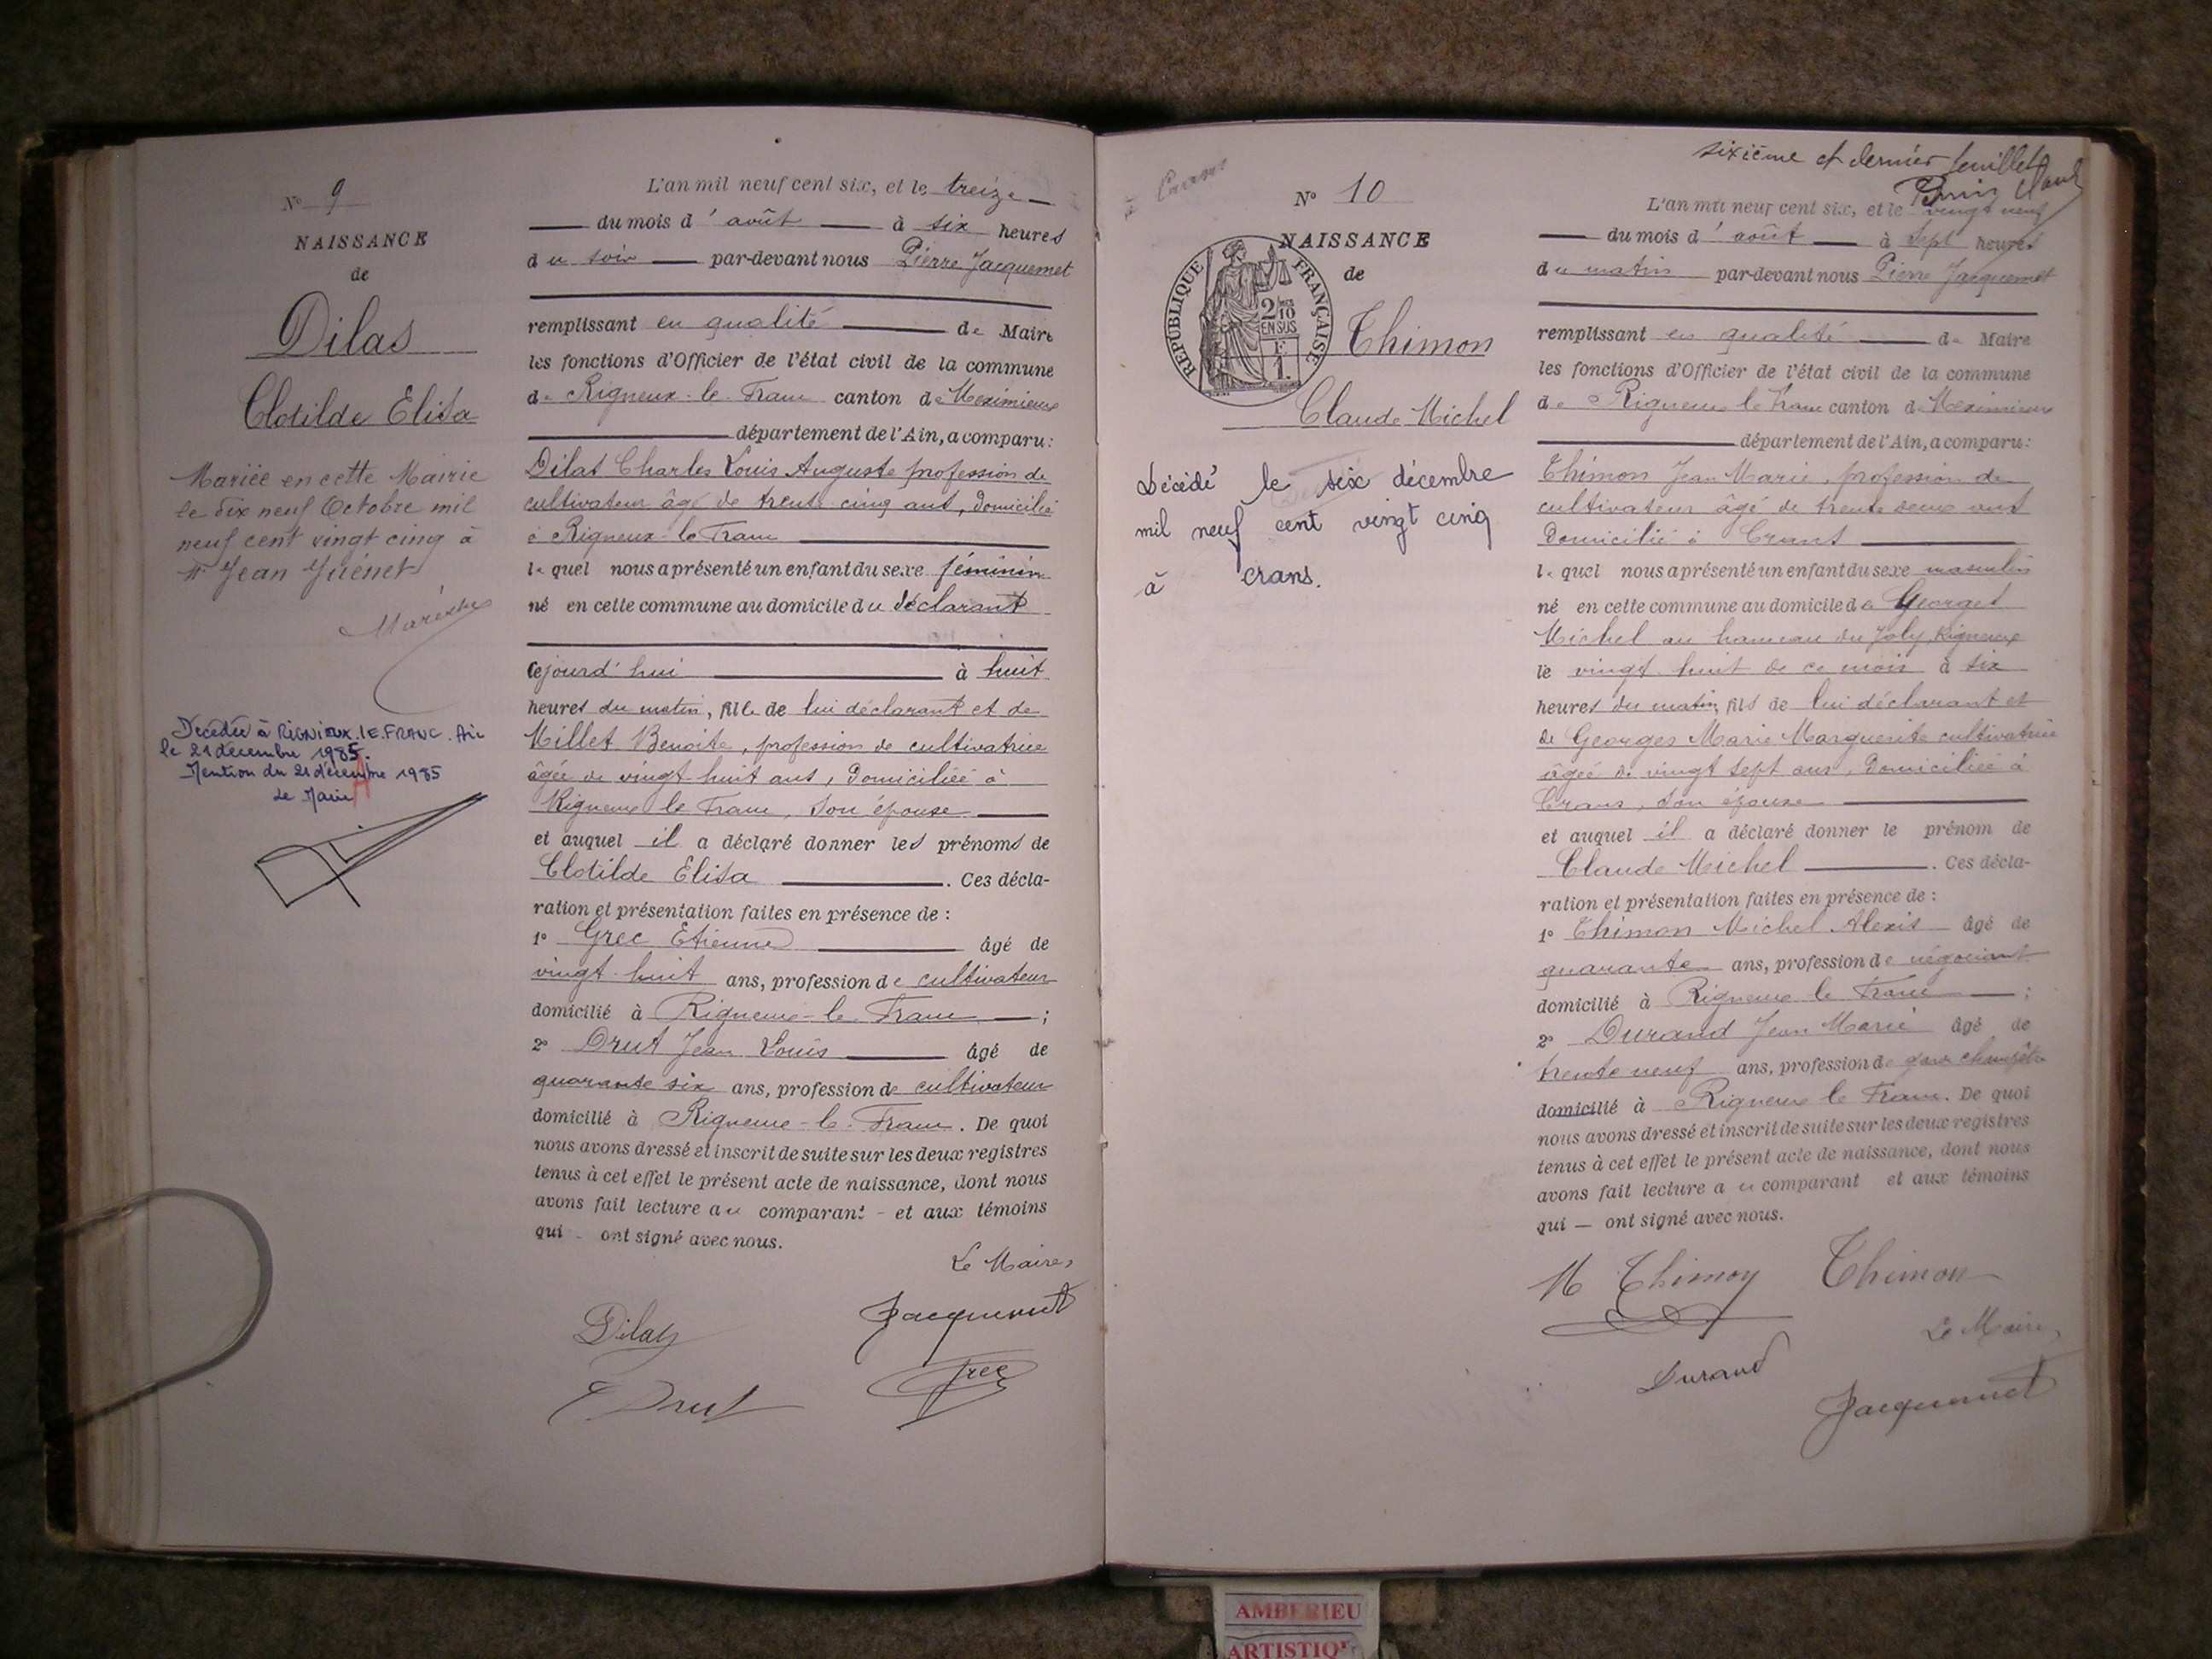 N° 9
NAISSANCE
de
Dilas
Clotilde Elisa
Mariée en cette Mairie
le dix neuf Octobre mil
neuf cent vingt cinq à
Jean Guénet
Décédée à RIGNIEUX.LE.FRANC. Ain
le 21 décembre 1985.
Mention du 21 décembre 1985
Le Maire
L'an mil neuf cent six, et le treize
du mois d'août à six heures
du soir par-devant nous Pierre Jacquemet
remplissant en qualité de Maire
les fonctions d'Officier de l'état civil de la commune
de Rigneux-le-Franc canton de Meximieux
département de l'Ain, a comparu:
Dilas Charles Louis Auguste profession de
cultivateur âgé de trente cinq ans, domicilié
à Rigneux-le-Franc
lequel nous a présenté un enfant du sexe féminin
né en cette commune au domicile du déclarant
Cejourd'hui à huit
heures du matin, fille de lui déclarant et de
Millet Benoite, profession de cultivatrice
âgée de vingt-huit ans, domiciliée à
Rigneux le Franc, son épouse
et auquel il a déclaré donner les prénoms de
Clotilde Elisa. Ces décla-
ration et présentation faites en présence de :
1° Grec Etienne âgé de
vingt-huit ans, profession de cultivateur
domicilié à Rigneux-le-Franc ;
2° Drut Jean Louis âgé de
quarante six ans, profession de cultivateur
domicilié à Rigneux-le-Franc. De quoi
nous avons dressé et inscrit de suite sur les deux registres
tenus à cet effet le présent acte de naissance, dont nous
avons fait lecture au comparant - et aux témoins
qui - ont signé avec nous.
Le Maire,
Dilas Jacquemet
Drut Grec
sixième et dernier feuillet
N° 10
NAISSANCE
de
RÉPUBLIQUE FRANÇAISE
2/10 EN SUS
F. 1.
Thimon
Claude Michel
Décédé le six décembre
mil neuf cent vingt cinq
à crans.
L'an mil neuf cent six, et le vingt neuf
du mois d'août à sept heures
du matin par-devant nous Pierre Jacquemet
remplissant en qualité de Maire
les fonctions d'Officier de l'état civil de la commune
de Rigneux le Franc canton de Meximieux
département de l'Ain, a comparu:
Thimon Jean Marie, profession de
cultivateur âgé de trente deux ans
domicilié à Crans
lequel nous a présenté un enfant du sexe masculin
né en cette commune au domicile de Georges
Michel au hameau du Joly, Rigneux
le vingt huit de ce mois à six
heures du matin, fils de lui déclarant et
de Georges Marie Marguerite cultivatrice
âgée de vingt sept ans, domiciliée à
Crans, son épouse
et auquel il a déclaré donner le prénom de
Claude Michel. Ces décla-
ration et présentation faites en présence de :
1° Thimon Michel Alexis âgé de
quarante ans, profession de négociant
domicilié à Rigneux le Franc ;
2° Durand Jean Marie âgé de
trente neuf ans, profession de garde champêtre
domicilié à Rigneux le Franc. De quoi
nous avons dressé et inscrit de suite sur les deux registres
tenus à cet effet le présent acte de naissance, dont nous
avons fait lecture au comparant et aux témoins
qui — ont signé avec nous.
M Thimon Thimon
Le Maire,
Durand
Jacquemet
AMBERIEU
ARTISTIQ